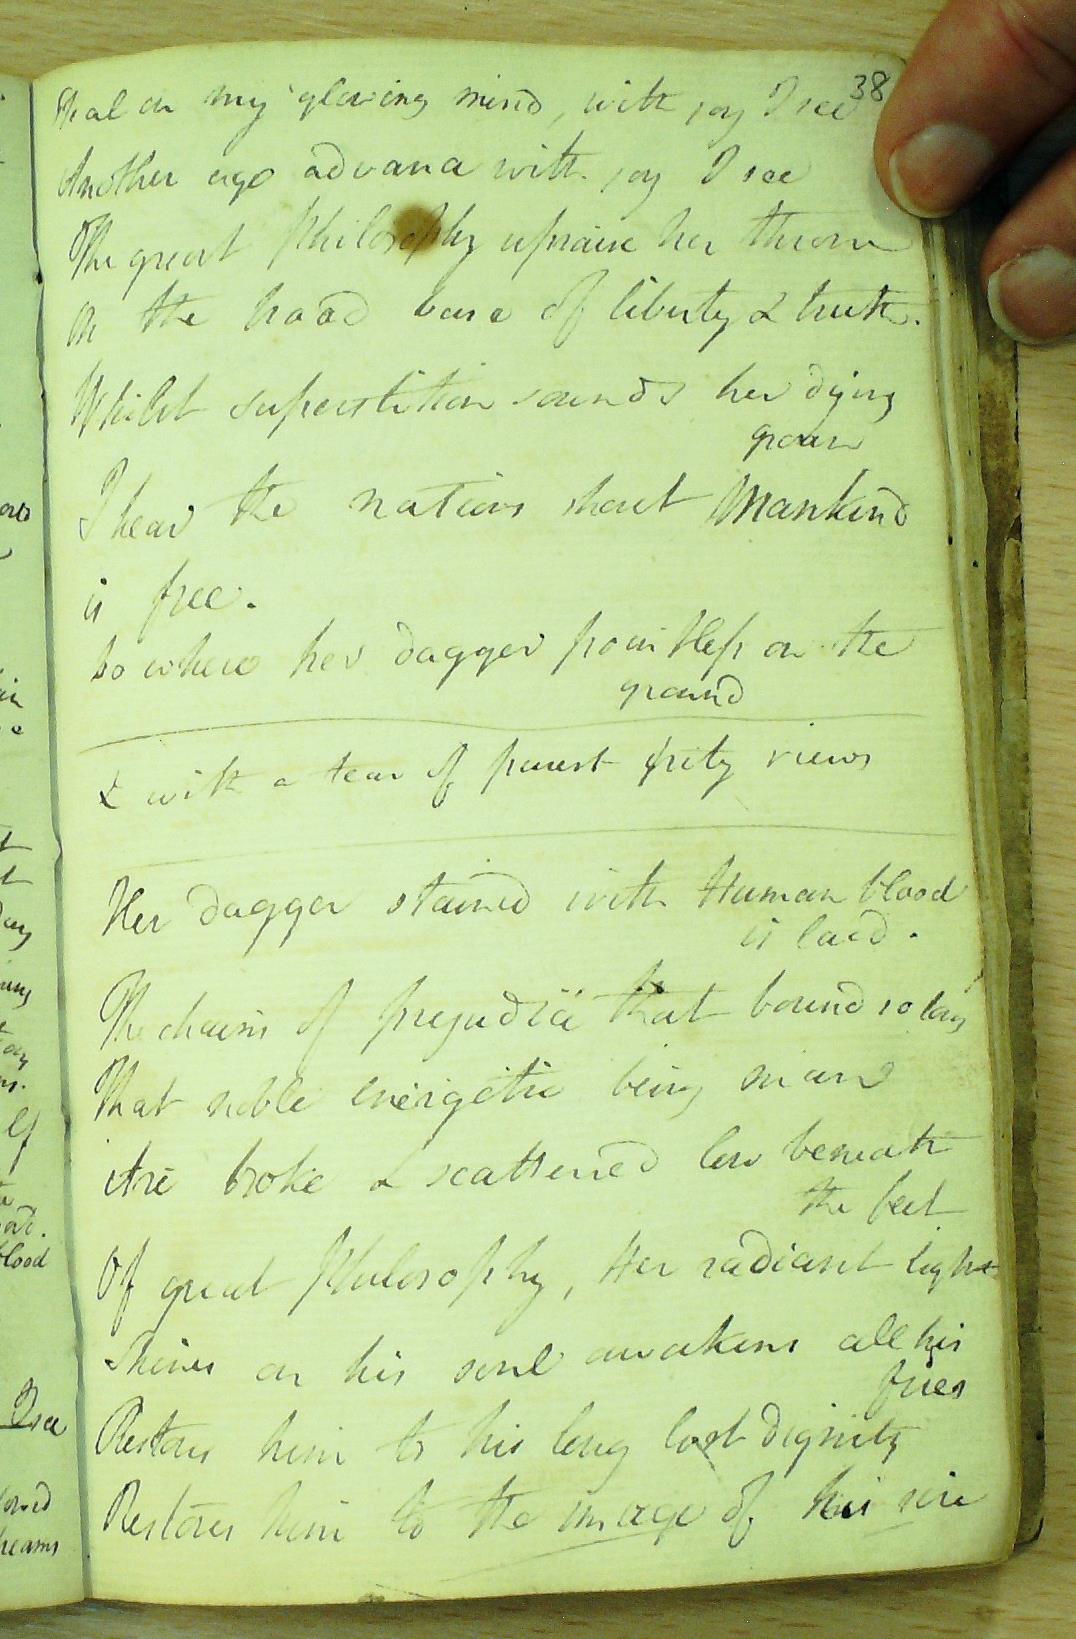 38
Steal on my glowing mind, with joy I see
Another age advance with joy I see
The great Philosophy upraise her throne
On the broad base of liberty & truth.
Whilst superstition sounds her dying
groan
I hear the nations shout Mankind
is free.
her dagger pointless on the
ground
& with a tear of purest pity views
Her dagger stained with Human blood
is laid.
The chains of prejudice that bound so long
That noble energetic being man
Are broke & scattered low beneath
the feet
Of great Philosophy, Her radiant light
Shines on his soul awakens all his
fires
Restores him to his long lost dignity
Restores him to the image of his sire
blood
I see